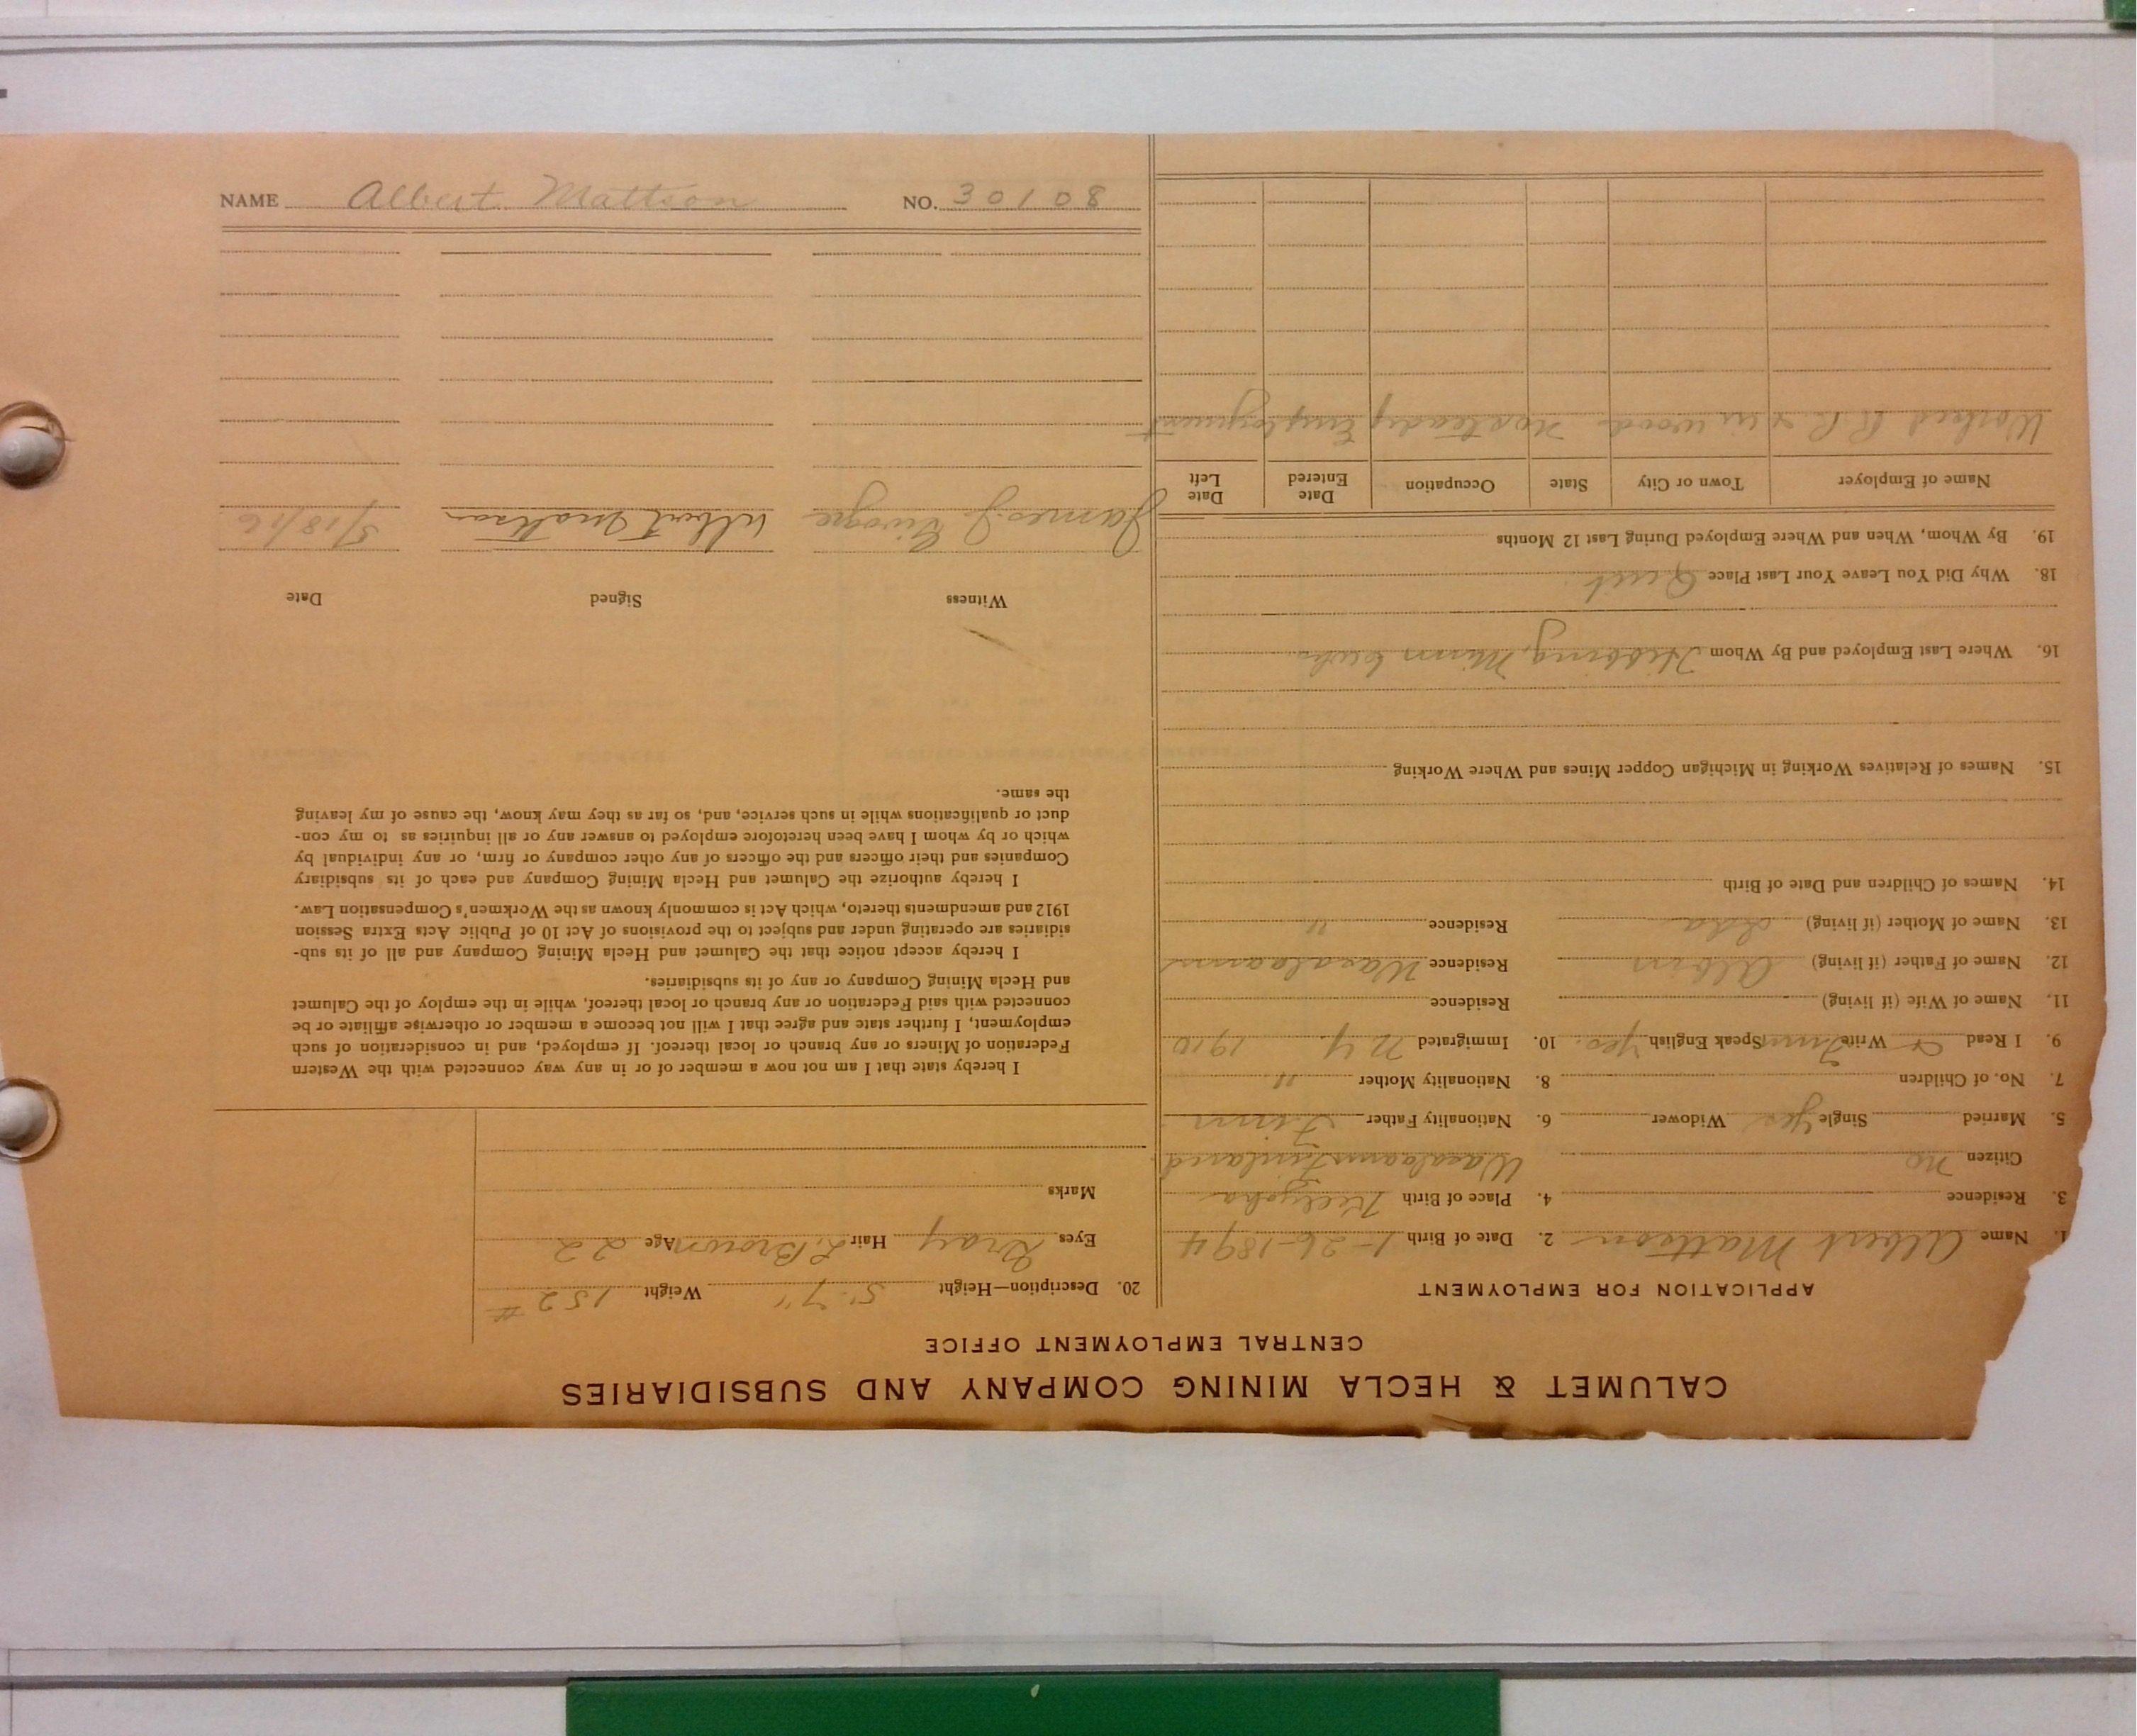 CALUMET & HECLA MINING COMPANY AND SUBSIDIARIES
CENTRAL EMPLOYMENT OFFICE
APPLICATION FOR EMPLOYMENT
1. Name Albert Mattson 2. Date of Birth 1-26-1894
3. Residence 4. Place of Birth
Citizen no Finland
5. Married Single Yes Widower 6. Nationality Father Finn
7. No. of Children 8. Nationality Mother "
9. I Read & Write Finn Speak English Yes. 10. Immigrated N.Y. 1910
11. Name of Wife (if living) Residence
12. Name of Father (if living) Albin Residence
13. Name of Mother (if living) Ida Residence "
14. Names of Children and Date of Birth
15. Names of Relatives Working in Michigan Copper Mines and Where Working
16. Where Last Employed and By Whom Hibbing, Minn
18. Why Did You Leave Your Last Place Quit
19. By Whom, When and Where Employed During Last 12 Months
Name of Employer Town or City State Occupation Date Entered Date Left
Worked R.R. & in woods no steady Employment
20. Description—Height 5'-7" Weight 152 #
Eyes Gray Hair L. Brown Age 22
Marks
I hereby state that I am not now a member of or in any way connected with the Western
Federation of Miners or any branch or local thereof. If employed, and in consideration of such
employment, I further state and agree that I will not become a member or otherwise affiliate or be
connected with said Federation or any branch or local thereof, while in the employ of the Calumet
and Hecla Mining Company or any of its subsidiaries.
I hereby accept notice that the Calumet and Hecla Mining Company and all of its sub-
sidiaries are operating under and subject to the provisions of Act 10 of Public Acts Extra Session
1912 and amendments thereto, which Act is commonly known as the Workmen's Compensation Law.
I hereby authorize the Calumet and Hecla Mining Company and each of its subsidiary
Companies and their officers and the officers of any other company or firm, or any individual by
which or by whom I have been heretofore employed to answer any or all inquiries as to my con-
duct or qualifications while in such service, and, so far as they may know, the cause of my leaving
the same.
Witness Signed Date
James J. Albert Mattson 5/18/16
NAME Albert Mattson NO. 30108